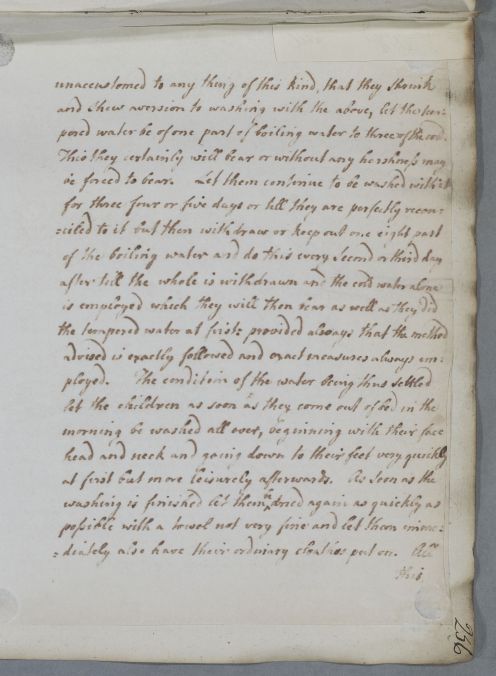 unaccustomed to any thing of this kind, that they shrink
and shew aversion to washing with the above, let the tem-
pered water be of one part of boiling water to three of the cold.
This they certainly will bear or without any harshness may
be forced to bear. Let them continue to be washed with it
for three four or five days or till they are perfectly recon-
-ciled to it but then withdraw or keep out one eight part
of the boiling water and do this every second or third day
after till the whole is withdrawn and the cold water alone
is employed which they will then bear as well as they did
the tempered water at first: provided always that the method
advised is exactly followed and exact measures always em-
ployed. The condition of the water being thus settled
let the children as soon as they come out of bed in the
morning be washed all over, beginning with their face
head and neck and going down to their feet very quickly
at first but more leisurely afterwards. As soon as the
washing is finished let them dried again as quickly as
possible with a towel not very fine and let them imme-
-diately also have their ordinary cloaths put on.
this
236